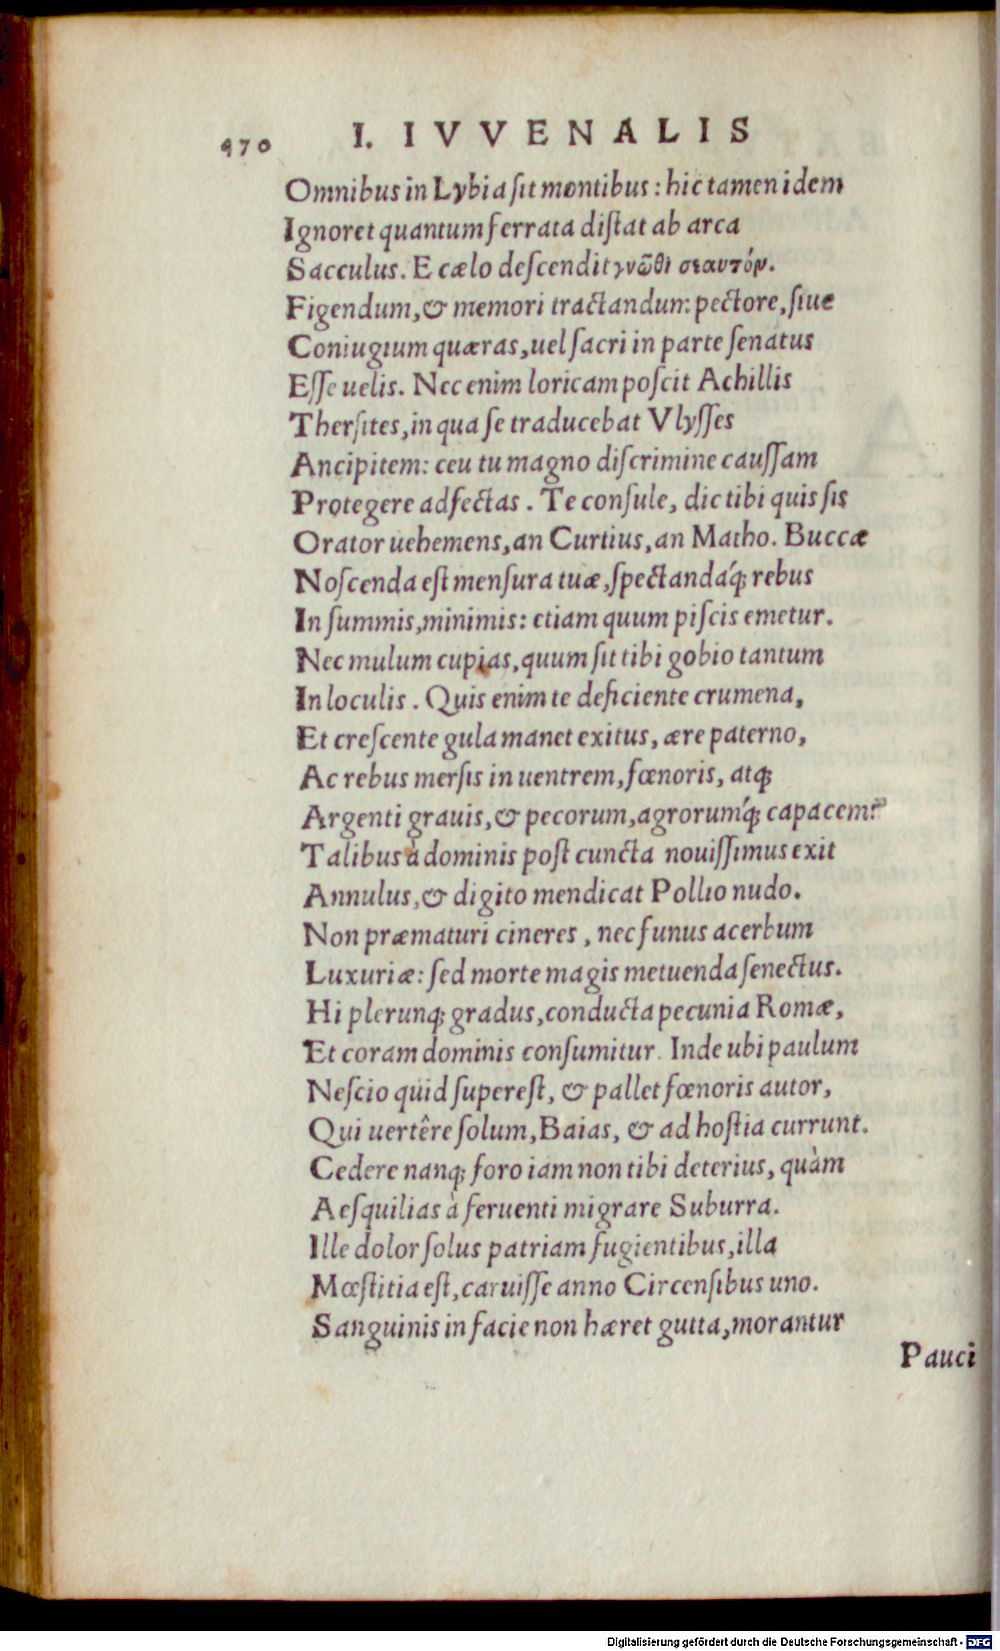 470 I. IVVENALIS
Omnibus in Lybia sit montibus: hic tamen idem
Ignoret quantum ferrata distat ab arca
Sacculus. E cælo descendit γνῶθι σεαυτόν.
Figendum, & memori tractandum pectore, siue
Coniugium quæras, uel sacri in parte senatus
Esse uelis. Nec enim loricam poscit Achillis
Thersites, in qua se traducebat Vlysses
Ancipitem: ceu tu magno discrimine caussam
Protegere adfectas. Te consule, dic tibi quis sis
Orator uehemens, an Curtius, an Matho. Buccæ
Noscenda est mensura tuæ, spectandáq; rebus
In summis, minimis: etiam quum piscis emetur.
Nec mulum cupias, quum sit tibi gobio tantum
In loculis. Quis enim te deficiente crumena,
Et crescente gula manet exitus, ære paterno,
Ac rebus mersis in uentrem, fœnoris, atq;
Argenti grauis, & pecorum, agrorumq́; capacem?
Talibus à dominis post cuncta nouissimus exit
Annulus, & digito mendicat Pollio nudo.
Non præmaturi cineres, nec funus acerbum
Luxuriæ: sed morte magis metuenda senectus.
Hi plerunq; gradus, conducta pecunia Romæ,
Et coram dominis consumitur. Inde ubi paulum
Nescio quid superest, & pallet fœnoris autor,
Qui uertêre solum, Baias, & ad hostia currunt.
Cedere nanq; foro iam non tibi deterius, quàm
Aesquilias à feruenti migrare Suburra.
Ille dolor solus patriam fugientibus, illa
Mœstitia est, caruisse anno Circensibus uno.
Sanguinis in facie non hæret gutta, morantur
Pauci
Digitalisierung gefördert durch die Deutsche Forschungsgemeinschaft - DFG